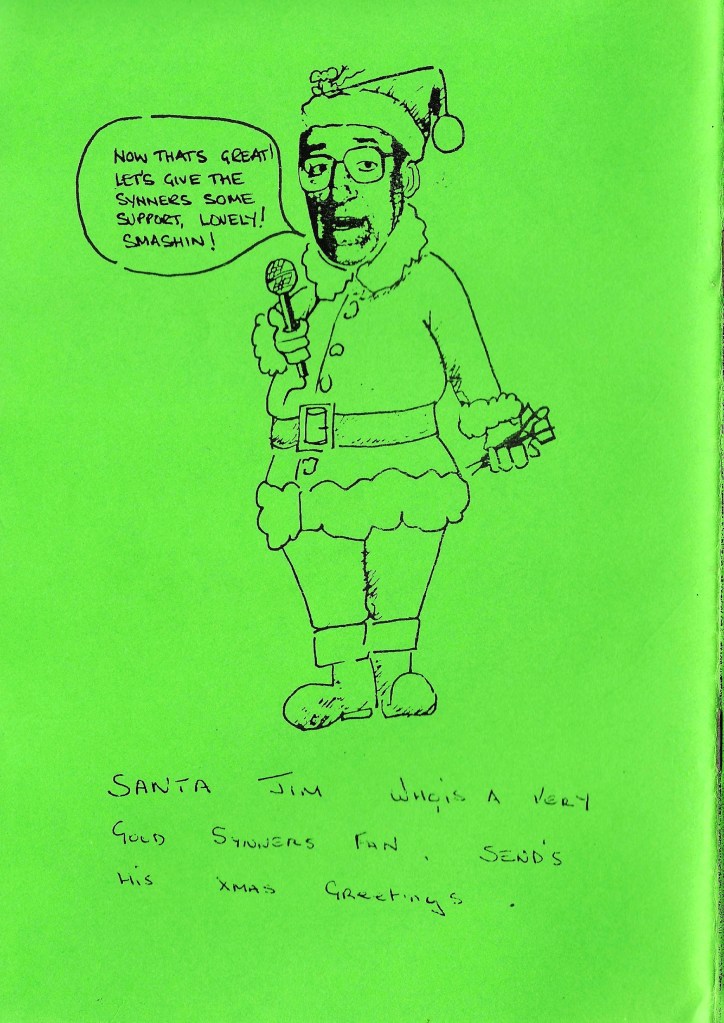 NOW THATS GREAT!
LET'S GIVE THE
SYNNERS SOME
SUPPORT, LOVELY!
SMASHIN!
SANTA JIM WHO,IS A VERY
GOLD SYNNERS FAN. SEND'S
HIS XMAS GREETINGS.